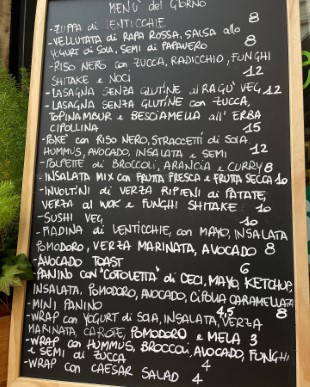 MENU' del GIORNO
-ZUPPA di LENTICCHIE 8
-VELLUTATA di RAPA ROSSA, SALSA allo
YOGURT di SOIA, SEMI di PAPAVERO 8
-RISO NERO con ZUCCA, RADICCHIO, FUNGHI
SHITAKE e NOCI 12
-LASAGNA SENZA GLUTINE al RAGU' VEG 12
-LASAGNA SENZA GLUTINE con ZUCCA,
TOPINAMBUR e BESCIAMELLA all' ERBA
CIPOLLINA 15
-POKE' con RISO NERO, STRACCETTI di SOIA
HUMMUS, AVOCADO, INSALATA e SEMI 12
-POLPETTE di BROCCOLI, ARANCIA e CURRY 8
-INSALATA MIX con FRUTTA FRESCA e FRUTTA SECCA 10
-INVOLTINI di VERZA RIPIENI di PATATE,
VERZA al WOK e FUNGHI SHITAKE 10
-SUSHI VEG 10
-PIADINA di LENTICCHIE, con MAYO, INSALATA
POMODORO, VERZA MARINATA, AVOCADO 8
-AVOCADO TOAST 6
-PANINO con "COTOLETTA" di CECI, MAYO, KETCHUP,
INSALATA, POMODORO, AVOCADO, CIPOLLA CARAMELLATA 8
-MINI PANINO 4,5
-WRAP con YOGURT di SOIA, INSALATA, VERZA
MARINATA, CAROTE, POMODORO e MELA 3
-WRAP con HUMMUS, BROCCOLI, AVOCADO, FUNGHI
e SEMI di ZUCCA 4
-WRAP con CAESAR SALAD 4